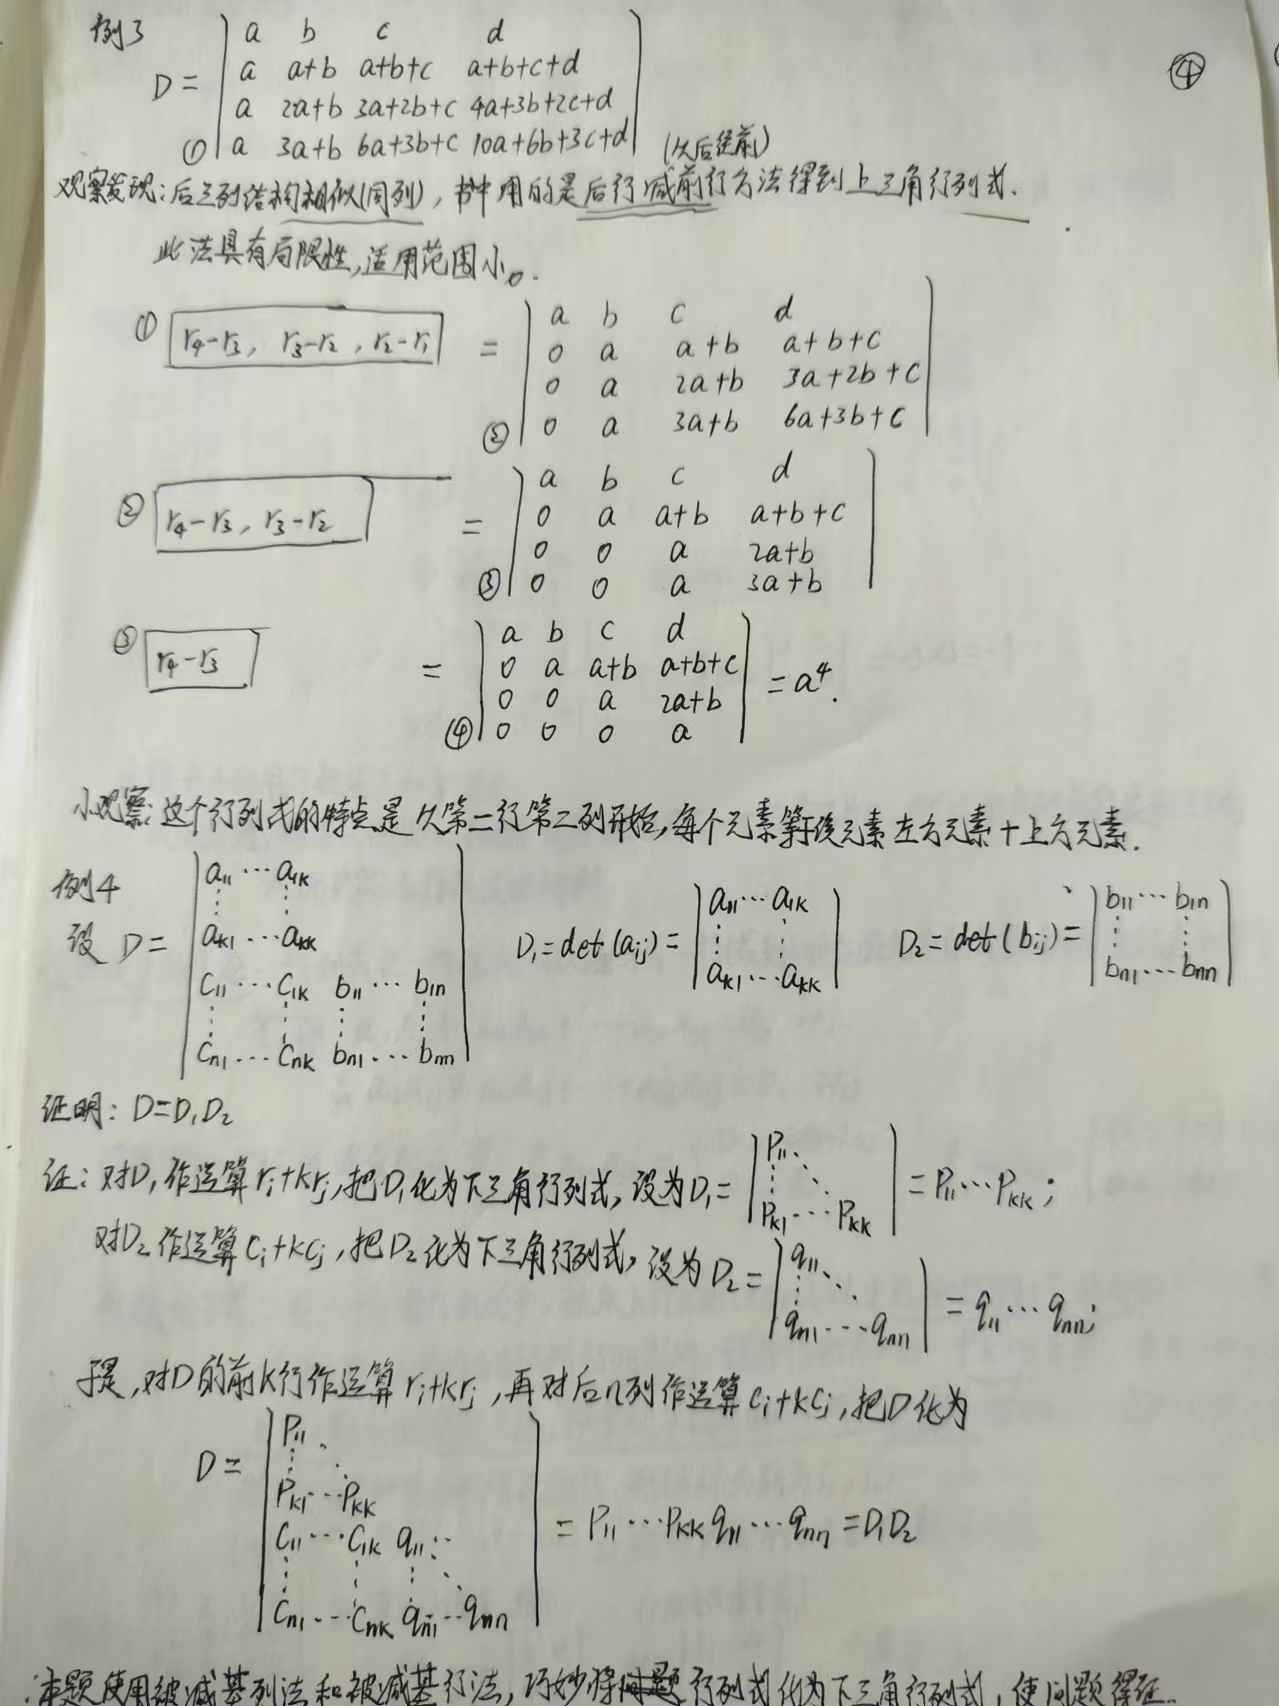 例3
④
D = | a b c d |
| a a+b a+b+c a+b+c+d |
| a 2a+b 3a+2b+c 4a+3b+2c+d |
① | a 3a+b 6a+3b+c 10a+6b+3c+d | (从后往前)
观察发现：后三列结构相似(同列)，书中用的是后行减前行方法得到上三角行列式.
此法具有局限性,适用范围小。
① r₄-r₃, r₃-r₂, r₂-r₁ = | a b c d |
| 0 a a+b a+b+c |
| 0 a 2a+b 3a+2b+c |
② | 0 a 3a+b 6a+3b+c |
② r₄-r₃, r₃-r₂ = | a b c d |
| 0 a a+b a+b+c |
| 0 0 a 2a+b |
③ | 0 0 a 3a+b |
③ r₄-r₃ = | a b c d |
| 0 a a+b a+b+c | = a⁴.
| 0 0 a 2a+b |
④ | 0 0 0 a |
小观察:这个行列式的特点是从第二行第二列开始,每个元素等于该元素左方元素+上方元素.
例4
设 D= | a₁₁ ⋯ a₁ₖ |
| ⋮ ⋮ |
| aₖ₁ ⋯ aₖₖ |
| c₁₁ ⋯ c₁ₖ b₁₁ ⋯ b₁ₙ |
| ⋮ ⋮ ⋮ ⋮ |
| cₙ₁ ⋯ cₙₖ bₙ₁ ⋯ bₙₙ |
D₁=det(aᵢⱼ)= | a₁₁ ⋯ a₁ₖ |
| ⋮ ⋮ |
| aₖ₁ ⋯ aₖₖ |
D₂=det(bᵢⱼ)= | b₁₁ ⋯ b₁ₙ |
| ⋮ ⋮ |
| bₙ₁ ⋯ bₙₙ |
证明: D=D₁D₂
证: 对D₁作运算rᵢ+krⱼ,把D₁化为下三角行列式,设为D₁= | p₁₁ ⋱ |
| pₖ₁ ⋯ pₖₖ | = p₁₁ ⋯ pₖₖ;
对D₂作运算cᵢ+kcⱼ,把D₂化为下三角行列式,设为D₂= | q₁₁ ⋱ |
| qₙ₁ ⋯ qₙₙ | = q₁₁ ⋯ qₙₙ;
于是,对D的前k行作运算rᵢ+krⱼ,再对后n列作运算cᵢ+kcⱼ,把D化为
D= | p₁₁ ⋱ |
| pₖ₁ ⋯ pₖₖ |
| c₁₁ ⋯ c₁ₖ q₁₁ ⋱ | = p₁₁ ⋯ pₖₖ q₁₁ ⋯ qₙₙ = D₁D₂
| cₙ₁ ⋯ cₙₖ qₙ₁ ⋯ qₙₙ |
本题使用被减基列法和被减基行法,巧妙将行列式化为下三角行列式,使问题得证.